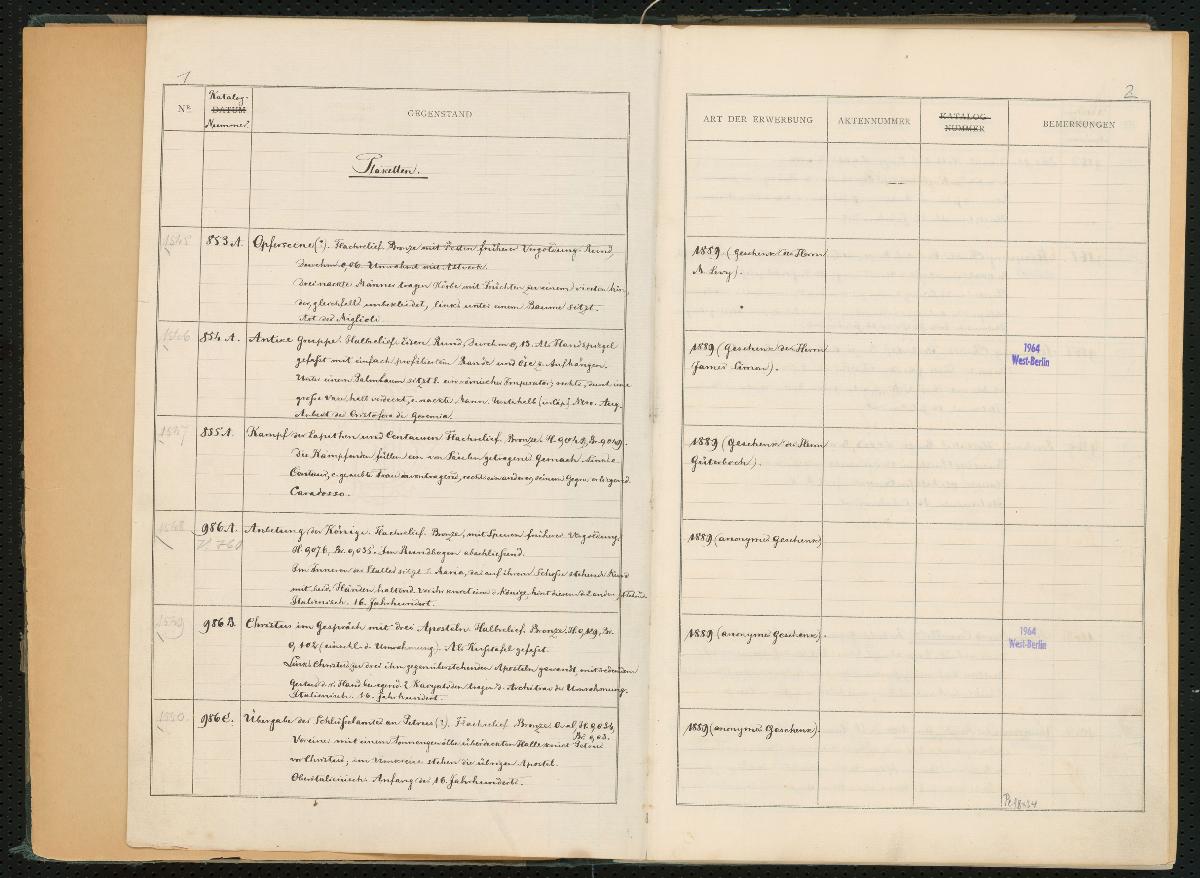 1
Nr.
Katalog-
DATUM
Nummer.
GEGENSTAND
Plaketten.
1545
853 A.
Opferscene (?). Flachrelief. Bronze mit Resten früherer Vergoldung. Rund,
Durchm. 0,06. Umrahmt mit Astwerk.
Drei nackte Männer tragen Körbe mit Früchten zu einem vierten hin,
der, gleichfalls unbekleidet, links unter einem Baume sitzt.
Art des Miglioli
1546
854 A.
Antike Gruppe. Halbrelief. Eisen. Rund, Durchm. 0,13. Als Handspiegel
gefaßt mit einfach profiliertem Rande und Öse z. Aufhängen.
Unter einem Palmbaum sitzt l. ein römischer Imperator; rechts, durch eine
große Vase halb verdeckt, e. nackter Mann. Unterhalb Nero. Aug.
Arbeit des Cristoforo da Geremia.
1547
855 A.
Kampf der Lapithen und Centauren. Flachrelief. Bronze. H. 0,041, Br. 0,049.
Die Kämpfenden füllen ein von Säulen getragenes Gemach. Links e.
Centaur, e. geraubte Frau davontragend, rechts ein anderer, seinem Gegner erliegend.
Caradosso.
1548
986 A.
Anbetung der Könige. Flachrelief. Bronze, mit Spuren früherer Vergoldung.
H. 0,076, Br. 0,035. Im Rundbogen abschließend.
Im Inneren des Stalles sitzt l. Maria, das auf ihrem Schoße stehende Kind
mit beid. Händen haltend. Vor ihr kniet ein d. Könige, hint. diesem die 2 anderen stehend.
Italienisch. 16. Jahrhundert.
1549
986 B.
Christus im Gespräch mit drei Aposteln. Halbrelief. Bronze. H. 0,129, Br.
0,102 (einschl. d. Umrahmung). Als Kußtafel gefaßt.
Links Christus zu drei ihm gegenüberstehenden Aposteln gewandt, mit redendem
Gestus d. r. Hand bewegend. 2 Karyatiden tragen d. Architrav der Umrahmung.
Italienisch. 16. Jahrhundert.
1550.
986 C.
Übergabe des Schlüsselamtes an Petrus (?). Flachrelief. Bronze. Oval, H. 0,034,
Br. 0,03.
Vor einer mit einem Tonnengewölbe überdeckten Halle kniet Petrus
vor Christus; im Umkreise stehen die übrigen Apostel.
Oberitalienisch. Anfang des 16. Jahrhunderts.
2
ART DER ERWERBUNG
AKTENNUMMER
KATALOG-
NUMMER
BEMERKUNGEN
1889. (Geschenk des Herrn
M. Levy).
1889 (Geschenk des Herrn
James Simon).
1964
West-Berlin
1889 (Geschenk des Herrn
Güterbock).
1889 (anonymes Geschenk)
1889 (anonymes Geschenk).
1964
West-Berlin
1889 (anonymes Geschenk).